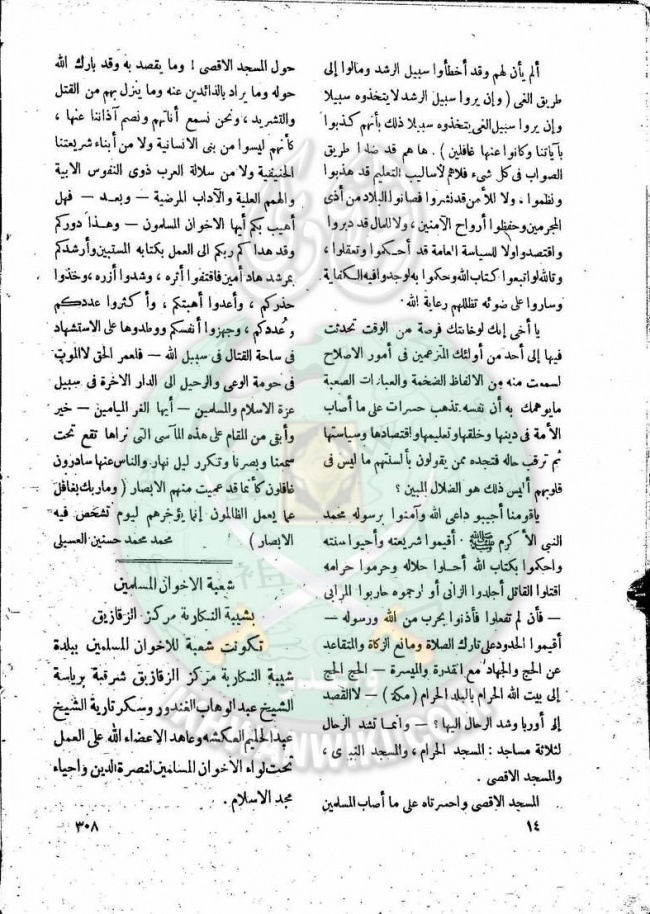 ألم يأن لهم وقد أخطأوا سبيل الرشد ومالوا إلى
طريق الغى ( وإن يروا سبيل الرشد لا يتخذوه سبيلا
وإن يروا سبيل الغى يتخذوه سبيلا ذلك بأنهم كذبوا
بآياتنا وكانوا عنها غافلين ) . ها هم قد ضلوا طريق
الصواب فى كل شىء فلاهم لأساليب التعليم قد هذبوا
ونظموا ، ولا للأمن قد نشروا فصانوا البلاد من أذى
المجرمين وحفظوا أرواح الآمنين ، ولا للمال قد دبروا
واقتصدوا ولا للسياسة العامة قد أحكموا وتعقلوا ،
وتالله لو اتبعوا كتاب الله وحكموا به لوجدوا فيه الكفاية
وساروا على ضوئه تظللهم رعاية الله .
يا أخى إنك لو خانتك فرصة من الوقت تحدثت
فيها إلى أحد من أولئك المتزعمين فى أمور الاصلاح
لسمعت منه من الالفاظ الضخمة والعبارات الصعبة
مايوهمك به أن نفسه تذهب حسرات على ما أصاب
الأمة فى دينها وخلقها وتعليمها واقتصادها وسياستها
ثم ترقب حاله فتجده ممن يقولون بألسنتهم ما ليس فى
قلوبهم أليس ذلك هو الضلال المبين ؟
ياقومنا أجيبو داعى الله وآمنوا برسوله محمد
النبى الأ كرم ﷺ . أقيموا شريعته وأحيوا سنته
واحكموا بكتاب الله أحلوا حلاله وحرموا حرامه
اقتلوا القاتل أجلدوا الزانى أو ارجموه حاربوا المرابى
— فأن لم تفعلوا فأذنوا بحرب من الله ورسوله —
أقيموا الحدود على تارك الصلاة ومانع الزكاة والمتقاعد
عن الحج والجهاد مع المقدرة والميسرة — الحج الحج
إلى بيت الله الحرام بالبلد الحرام ( مكة ) — لا القصد
إلى أوربا وشد الرحال اليها ؟ — وانما تشد الرحال
لثلاثة مساجد : المسجد الحرام ، والمسجد النبوى ،
والمسجد الاقصى .
المسجد الاقصى واحسرتاه على ما أصاب المسلمين
١٤
حول المسجد الاقصى ! وما يقصد به وقد بارك الله
حوله وما يراد بالذائدين عنه وما ينزل بهم من القتل
والتشريد ، ونحن نسمع أناتهم ونصم آذاننا عنها ،
كأنهم ليسوا من بنى الانسانية ولا من أبناء شريعتنا
الحنيفية ولا من سلالة العرب ذوى النفوس الابية
والهمم العلية والآداب المرضية — وبعد — فهل
أهيب بكم أيها الاخوان المسلمون — وهذا دوركم
وقد هداكم ربكم الى العمل بكتابه المستبين وأرشدكم
بمرشد هاد أمين فاقتفوا أثره ، وشدوا أزره ، وخذوا
حذركم ، وأعدوا أهبتكم ، وأ كثروا عددكم
وعُددكم ، وجهزوا أنفسكم ووطدوها على الاستشهاد
فى ساحة القتال فى سبيل الله — فلعمر الحق لالموت
فى حومة الوغى والرحيل الى الدار الآخرة فى سبيل
عزة الاسلام والمسلمين — أيها الغر الميامين — خير
وأبقى من المقام على هذه المآسى التى نراها تقع تحت
سمعنا وبصرنا وتتكرر ليل نهار والناس عنها سادرون
غافلون كأنما قد عميت منهم الابصار ( وما ربك بغافل
عما يعمل الظالمون إنما يؤخرهم ليوم تشخص فيه
الابصار ) محمد محمد حسنين العسيلى
شعبة الاخوان المسلمين
بشيبة النكارية مركز الزقازيق
تكونت شعبة للاخوان المسلمين ببلدة
شيبة النكارية مركز الزقازيق شرقية برياسة
الشيخ عبد الوهاب الغندور وسكرتارية الشيخ
عبد الحليم المكشه وعاهد الاعضاء الله على العمل
تحت لواء الاخوان المسلمين لنصرة الدين واحياء
مجد الاسلام .
٣٠٨
IKHWANWIKI.COM